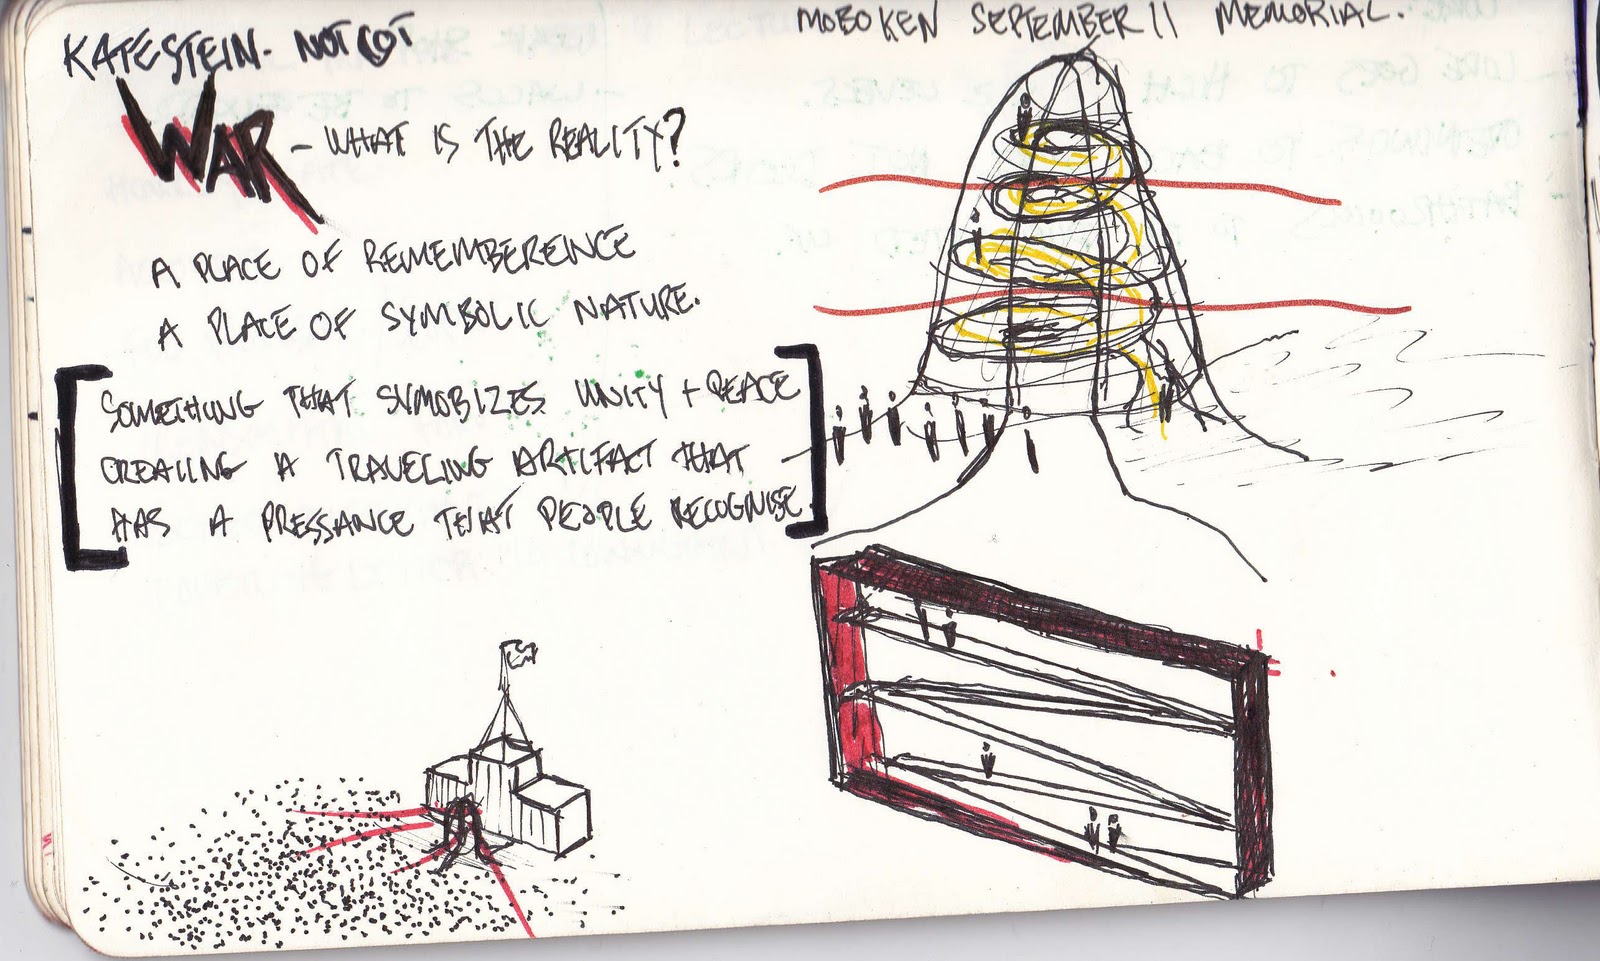 KATESTEIN. NOTCOT
WAR - WHAT IS THE REALITY?
A PLACE OF REMEMBEREINCE
A PLACE OF SYMBOLIC NATURE.
[SOMETHING THAT SYMOBIZES UNITY + PEACE
CREATING A TRAVELING ARTIFACT THAT -
HAS A PRESSANCE THAT PEOPLE RECOGNISE]
MOBOKEN SEPTEMBER 11 MEMORIAL.